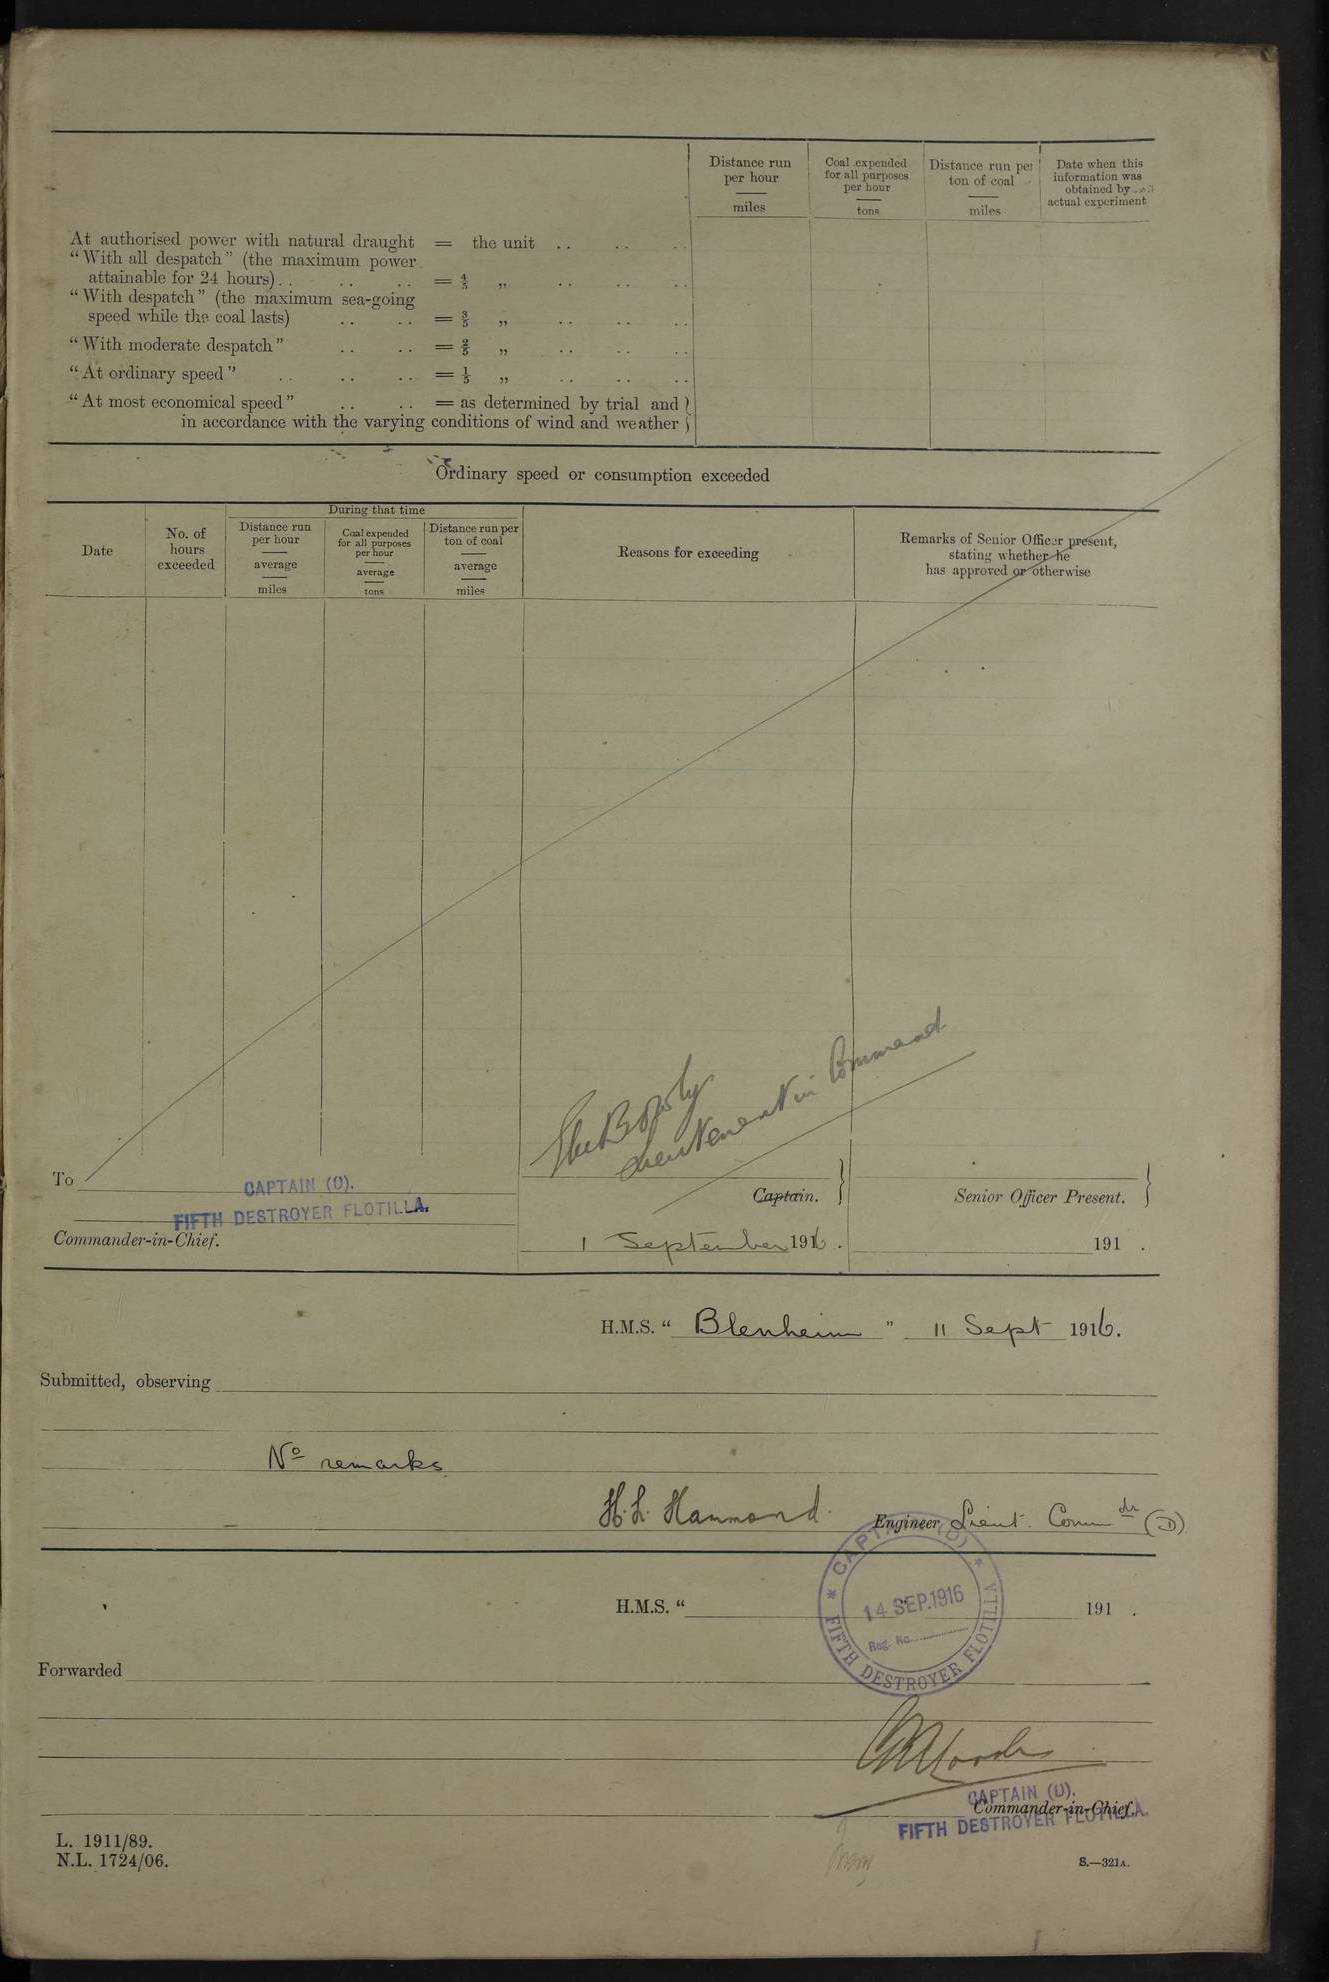 Distance run per hour miles
Coal expended for all purposes per hour tons
Distance run per ton of coal miles
Date when this information was obtained by actual experiment
At authorised power with natural draught = the unit .. .. ..
“With all despatch” (the maximum power
attainable for 24 hours) .. .. .. = 4/5 „ .. .. ..
“With despatch” (the maximum sea-going
speed while the coal lasts) .. .. = 3/5 „ .. .. ..
“With moderate despatch” .. .. = 2/5 „ .. .. ..
“At ordinary speed” .. .. .. = 1/5 „ .. .. ..
“At most economical speed” .. .. = as determined by trial and }
in accordance with the varying conditions of wind and weather }
Ordinary speed or consumption exceeded
During that time
Date
No. of hours exceeded
Distance run per hour average miles
Coal expended for all purposes per hour average tons
Distance run per ton of coal average miles
Reasons for exceeding
Remarks of Senior Officer present, stating whether he has approved or otherwise
Lieutenant in Command
To
CAPTAIN (D).
FIFTH DESTROYER FLOTILLA.
Commander-in-Chief.
Captain. }
Senior Officer Present. }
1 September 1916 .
191 .
H.M.S. “ Blenheim ” 11 Sept 1916.
Submitted, observing
No remarks
H.L. Hammond. Engineer Lieut. Commdr (D)
CAPTAIN (D) * FIFTH DESTROYER FLOTILLA *
14 SEP. 1916
Reg. No.
H.M.S. “ 191 .
Forwarded
CAPTAIN (D).
Commander-in-Chief.
FIFTH DESTROYER FLOTILLA.
L. 1911/89.
N.L. 1724/06.
S.—321A.